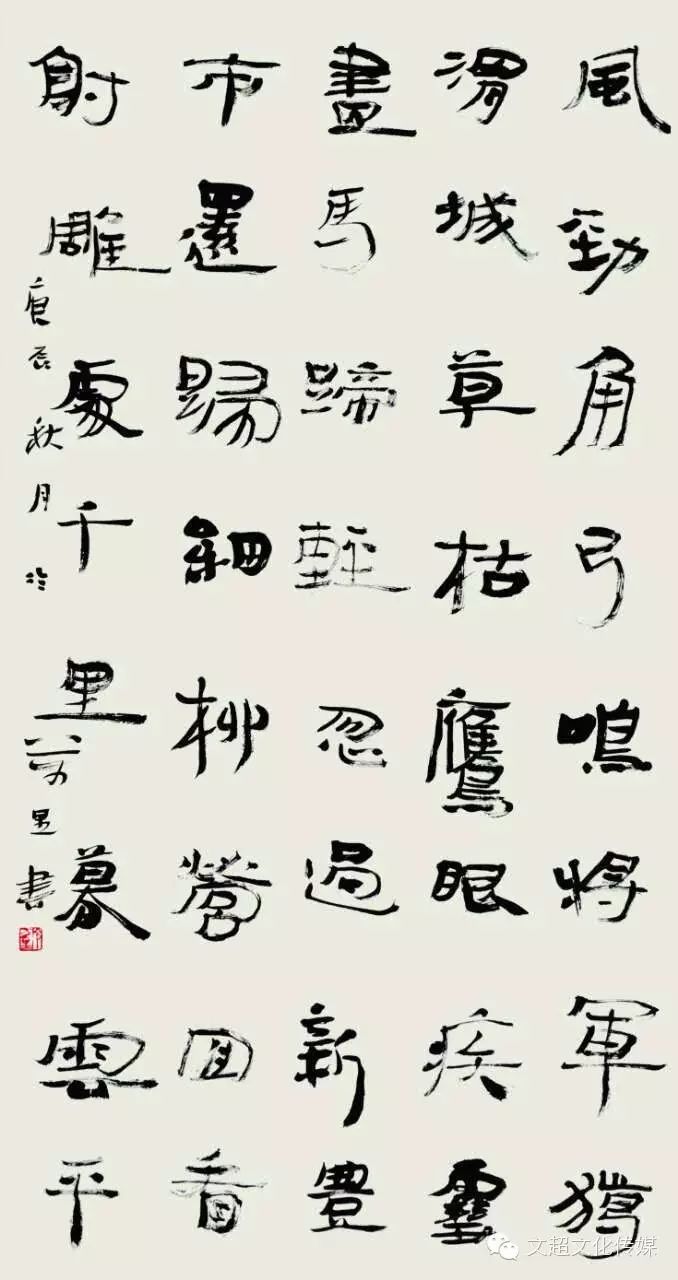 風勁角弓鳴將軍獵
渭城草枯鷹眼疾雪
盡馬蹄輕忽過新豊
市還歸細柳營回看
射雕處千里暮雲平
庚辰秋月於書
文超文化传媒